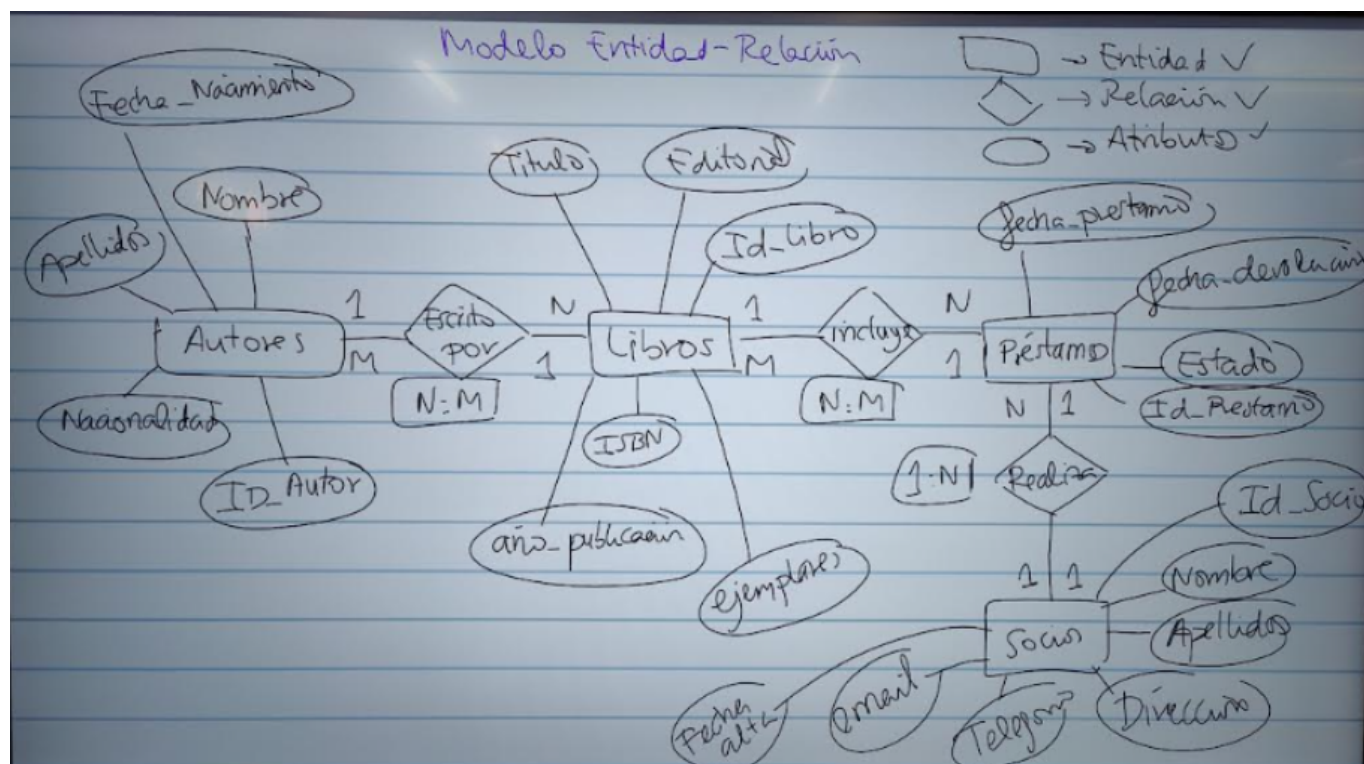 Modelo Entidad-Relación
→ Entidad ✓
→ Relación ✓
→ Atributo ✓
Fecha_Nacimiento
Nombre
Apellidos
Autores
Nacionalidad
ID_Autor
1
M
Escrito
por
N
1
N:M
Titulo
Editorial
Id_Libro
Libros
ISBN
año_publicación
ejemplares
1
M
incluye
N
1
N:M
fecha_prestamo
fecha_devolución
Préstamo
Estado
Id_Prestamo
N 1
1:N
Realiza
1 1
Id_Socio
Nombre
Apellidos
Socios
Dirección
Telefono
email
Fecha
alta